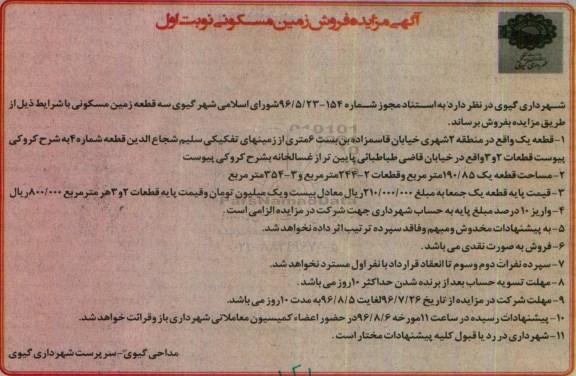 آگهی مزایده فروش زمین مسکونی نوبت اول
شهرداری گیوی در نظر دارد به استناد مجوز شماره ۱۵۴-۹۶/۵/۲۳ شورای اسلامی شهر گیوی سه قطعه زمین مسکونی با شرایط ذیل از
طریق مزایده بفروش برساند.
۱-قطعه یک واقع در منطقه ۲ شهری خیابان قاسمزاده بن بست ۶ متری از زمینهای تفکیکی سلیم شجاع الدین قطعه شماره ۴ به شرح کروکی
پیوست قطعات ۲ و ۳ واقع در خیابان قاضی طباطبائی پایین تر از غسالخانه بشرح کروکی پیوست
۲-مساحت قطعه یک ۱۹۰/۸۵ متر مربع وقطعات ۲-۲۴۴ متر مربع و ۳-۳۵۴ متر مربع
۳- قیمت پایه قطعه یک جمعا به مبلغ ۲۱۰/۰۰۰/۰۰۰ ریال معادل بیست و یک میلیون تومان وقیمت پایه قطعات ۲ و ۳ هر متر مربع ۸۰۰/۰۰۰ ریال
۴- واریز ۱۰ درصد مبلغ پایه به حساب شهرداری جهت شرکت در مزایده الزامی است.
۵- به پیشنهادات مخدوش ومبهم وفاقد سپرده ترتیب اثر داده نخواهد شد.
۶- فروش به صورت نقدی می باشد.
۷- سپرده نفرات دوم وسوم تا انعقاد قرارداد با نفر اول مسترد نخواهد شد.
۸- مهلت تسویه حساب بعد از برنده شدن حداکثر ۱۰ روز می باشد.
۹- مهلت شرکت در مزایده از تاریخ ۹۶/۷/۲۶ لغایت ۹۶/۸/۵ به مدت ۱۰ روز می باشد.
۱۰- پیشنهادات رسیده در ساعت ۱۱ مورخه ۹۶/۸/۶ در حضور اعضاء کمیسیون معاملاتی شهرداری باز وقرائت خواهد شد.
۱۱- شهرداری در رد یا قبول کلیه پیشنهادات مختار است.
مداحی گیوی-سرپرست شهرداری گیوی